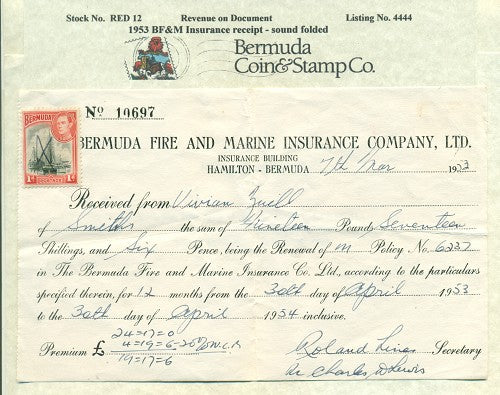 Stock No. RED 12 Revenue on Document Listing No. 4444
1953 BF&M Insurance receipt - sound folded
Bermuda
Coin&Stamp Co.
No 10697
BERMUDA
1d 1d
BERMUDA FIRE AND MARINE INSURANCE COMPANY, LTD.
INSURANCE BUILDING
HAMILTON - BERMUDA 7th Mar 1953
Received from Vivian
of Smiths the sum of Nineteen Pounds Seventeen
Shillings, and Six Pence, being the Renewal of M Policy No. 6237
in The Bermuda Fire and Marine Insurance Co. Ltd., according to the particulars
specified therein, for 12 months from the 30th day of April 1953
to the 30th day of April 1954 inclusive.
24=17=0
Premium £ 4=19=6-20%N.C.R
19=17=6
Roland Secretary
Charles